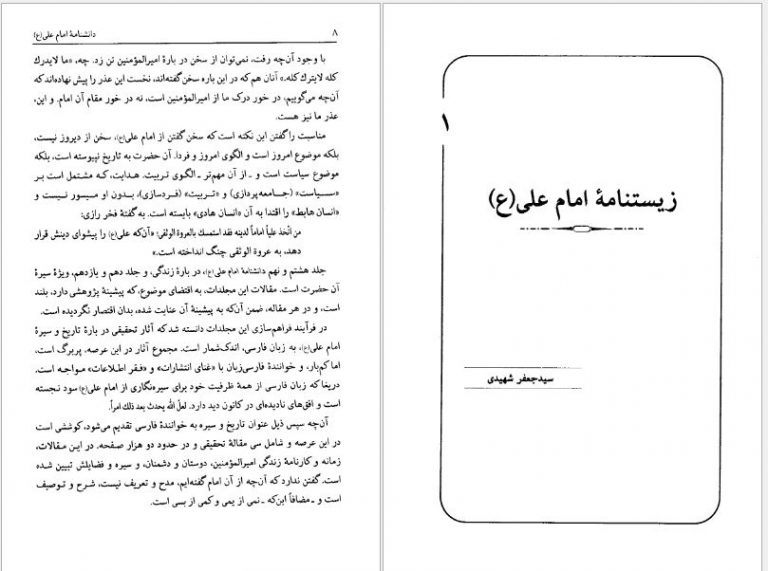 ۸
دانشنامهٔ امام علی(ع)
با وجود آن‌چه رفت، نمی‌توان از سخن در بارهٔ امیرالمؤمنین تن زد. چه، «ما لایدرك
کله لایترك کله.» آنان هم که در این باره سخن گفته‌اند، نخست این عذر را پیش نهاده‌اند که
آن‌چه می‌گوییم، در خور درک ما از امیرالمؤمنین است، نه در خور مقام آن امام. و این،
عذر ما نیز هست.
مناسبت را گفتن این نکته است که سخن گفتن از امام علی(ع)، سخن از دیروز نیست،
بلکه موضوع امروز است و الگوی امروز و فردا. آن حضرت به تاریخ نپیوسته است، بلکه
موضوع سیاست است و ـ از آن مهم‌تر ـ الگوی تربیت. هدایت، که مشتمل است بر
«سیاست» (جامعه‌پردازی) و «تربیت» (فردسازی)، بدون او میسور نیست و
«انسان هابط» را اقتدا به آن «انسان هادی» بایسته است. به گفتهٔ فخر رازی:
من اتّخذ علیاً اماماً لدینه فقد استمسك بالعروة الوثقی؛ «آن‌که علی(ع) را پیشوای دینش قرار
دهد، به عروة الوثقی چنگ انداخته است.»
جلد هشتم و نهم دانشنامهٔ امام علی(ع)، در بارهٔ زندگی، و جلد دهم و یازدهم، ویژهٔ سیرهٔ
آن حضرت است. مقالات این مجلدات، به اقتضای موضوع، که پیشینهٔ پژوهشی دارد، بلند
است، و در هر مقاله، ضمن آن‌که به پیشینهٔ آن عنایت شده، بدان اقتصار نگردیده است.
در فرآیند فراهم‌سازی این مجلدات دانسته شد که آثار تحقیقی در بارهٔ تاریخ و سیرهٔ
امام علی(ع)، به زبان فارسی، اندک‌شمار است. مجموع آثار در این عرصه، پربرگ است،
اما کم‌بار، و خوانندهٔ فارسی‌زبان با «غنای انتشارات» و «فقر اطلاعات» مواجه است.
دریغا که زبان فارسی از همهٔ ظرفیت خود برای سیره‌نگاری از امام علی(ع) سود نجسته
است و افق‌های نادیده‌ای در کانون دید دارد. لعلّ اللّه یحدث بعد ذلك امراً.
آن‌چه سپس ذیل عنوان تاریخ و سیره به خوانندهٔ فارسی تقدیم می‌شود، کوششی است
در این عرصه و شامل سی مقالهٔ تحقیقی و در حدود دو هزار صفحه. در این مقالات،
زمانه و کارنامهٔ زندگی امیرالمؤمنین، دوستان و دشمنان، و سیره و فضایلش تبیین شده
است. گفتن ندارد که آن‌چه از آن امام گفته‌ایم، مدح و تعریف نیست، شرح و توصیف
است و ـ مضافاً این‌که ـ نمی از یمی و کمی از بسی است.
۱
زیستنامهٔ امام علی(ع)
سیدجعفر شهیدی